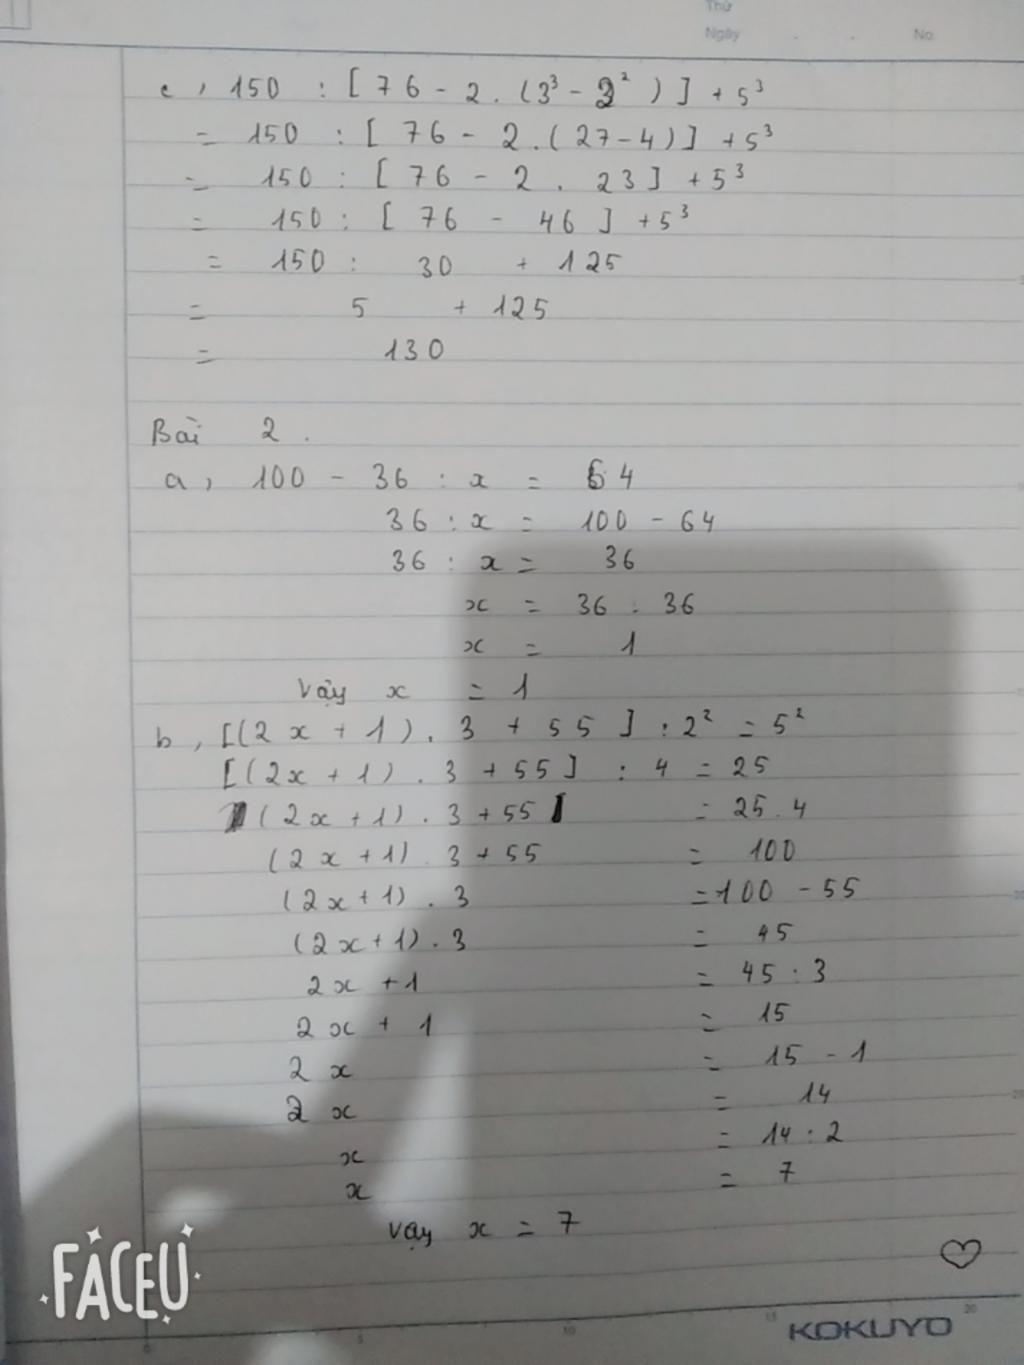 Thứ
Ngày . . No.
c, 150 : [ 76 - 2 . (3³ - 2² ) ] + 5³
= 150 : [ 76 - 2 . ( 27 - 4 ) ] + 5³
= 150 : [ 76 - 2 . 23 ] + 5³
= 150 : [ 76 - 46 ] + 5³
= 150 : 30 + 125
= 5 + 125
= 130
Bài 2 .
a, 100 - 36 : x = 64
36 : x = 100 - 64
36 : x = 36
x = 36 : 36
x = 1
Vậy x = 1
b, [(2 x + 1) . 3 + 55 ] : 2² = 5²
[(2x + 1) . 3 + 55 ] : 4 = 25
(2x + 1) . 3 + 55 = 25 . 4
(2x + 1) . 3 + 55 = 100
(2x + 1) . 3 = 100 - 55
(2x + 1) . 3 = 45
2x + 1 = 45 : 3
2x + 1 = 15
2x = 15 - 1
2x = 14
x = 14 : 2
x = 7
Vậy x = 7
FACEU
0 5 10 15 20
KOKUYO